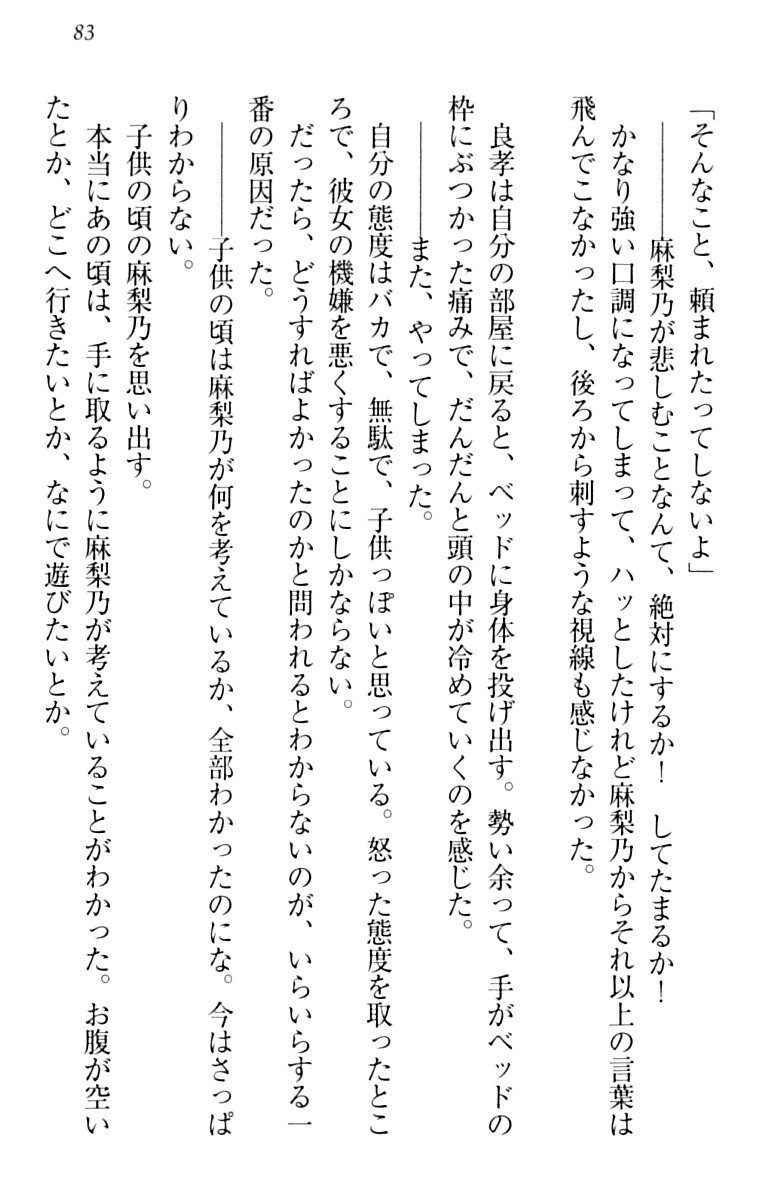 83
「そんなこと、頼まれたってしないよ」
――――麻梨乃が悲しむことなんて、絶対にするか！　してたまるか！
かなり強い口調になってしまって、ハッとしたけれど麻梨乃からそれ以上の言葉は
飛んでこなかったし、後ろから刺すような視線も感じなかった。
良孝は自分の部屋に戻ると、ベッドに身体を投げ出す。勢い余って、手がベッドの
枠にぶつかった痛みで、だんだんと頭の中が冷めていくのを感じた。
――――また、やってしまった。
自分の態度はバカで、無駄で、子供っぽいと思っている。怒った態度を取ったとこ
ろで、彼女の機嫌を悪くすることにしかならない。
だったら、どうすればよかったのかと問われるとわからないのが、いらいらする一
番の原因だった。
――――子供の頃は麻梨乃が何を考えているか、全部わかったのにな。今はさっぱ
りわからない。
子供の頃の麻梨乃を思い出す。
本当にあの頃は、手に取るように麻梨乃が考えていることがわかった。お腹が空い
たとか、どこへ行きたいとか、なにで遊びたいとか。